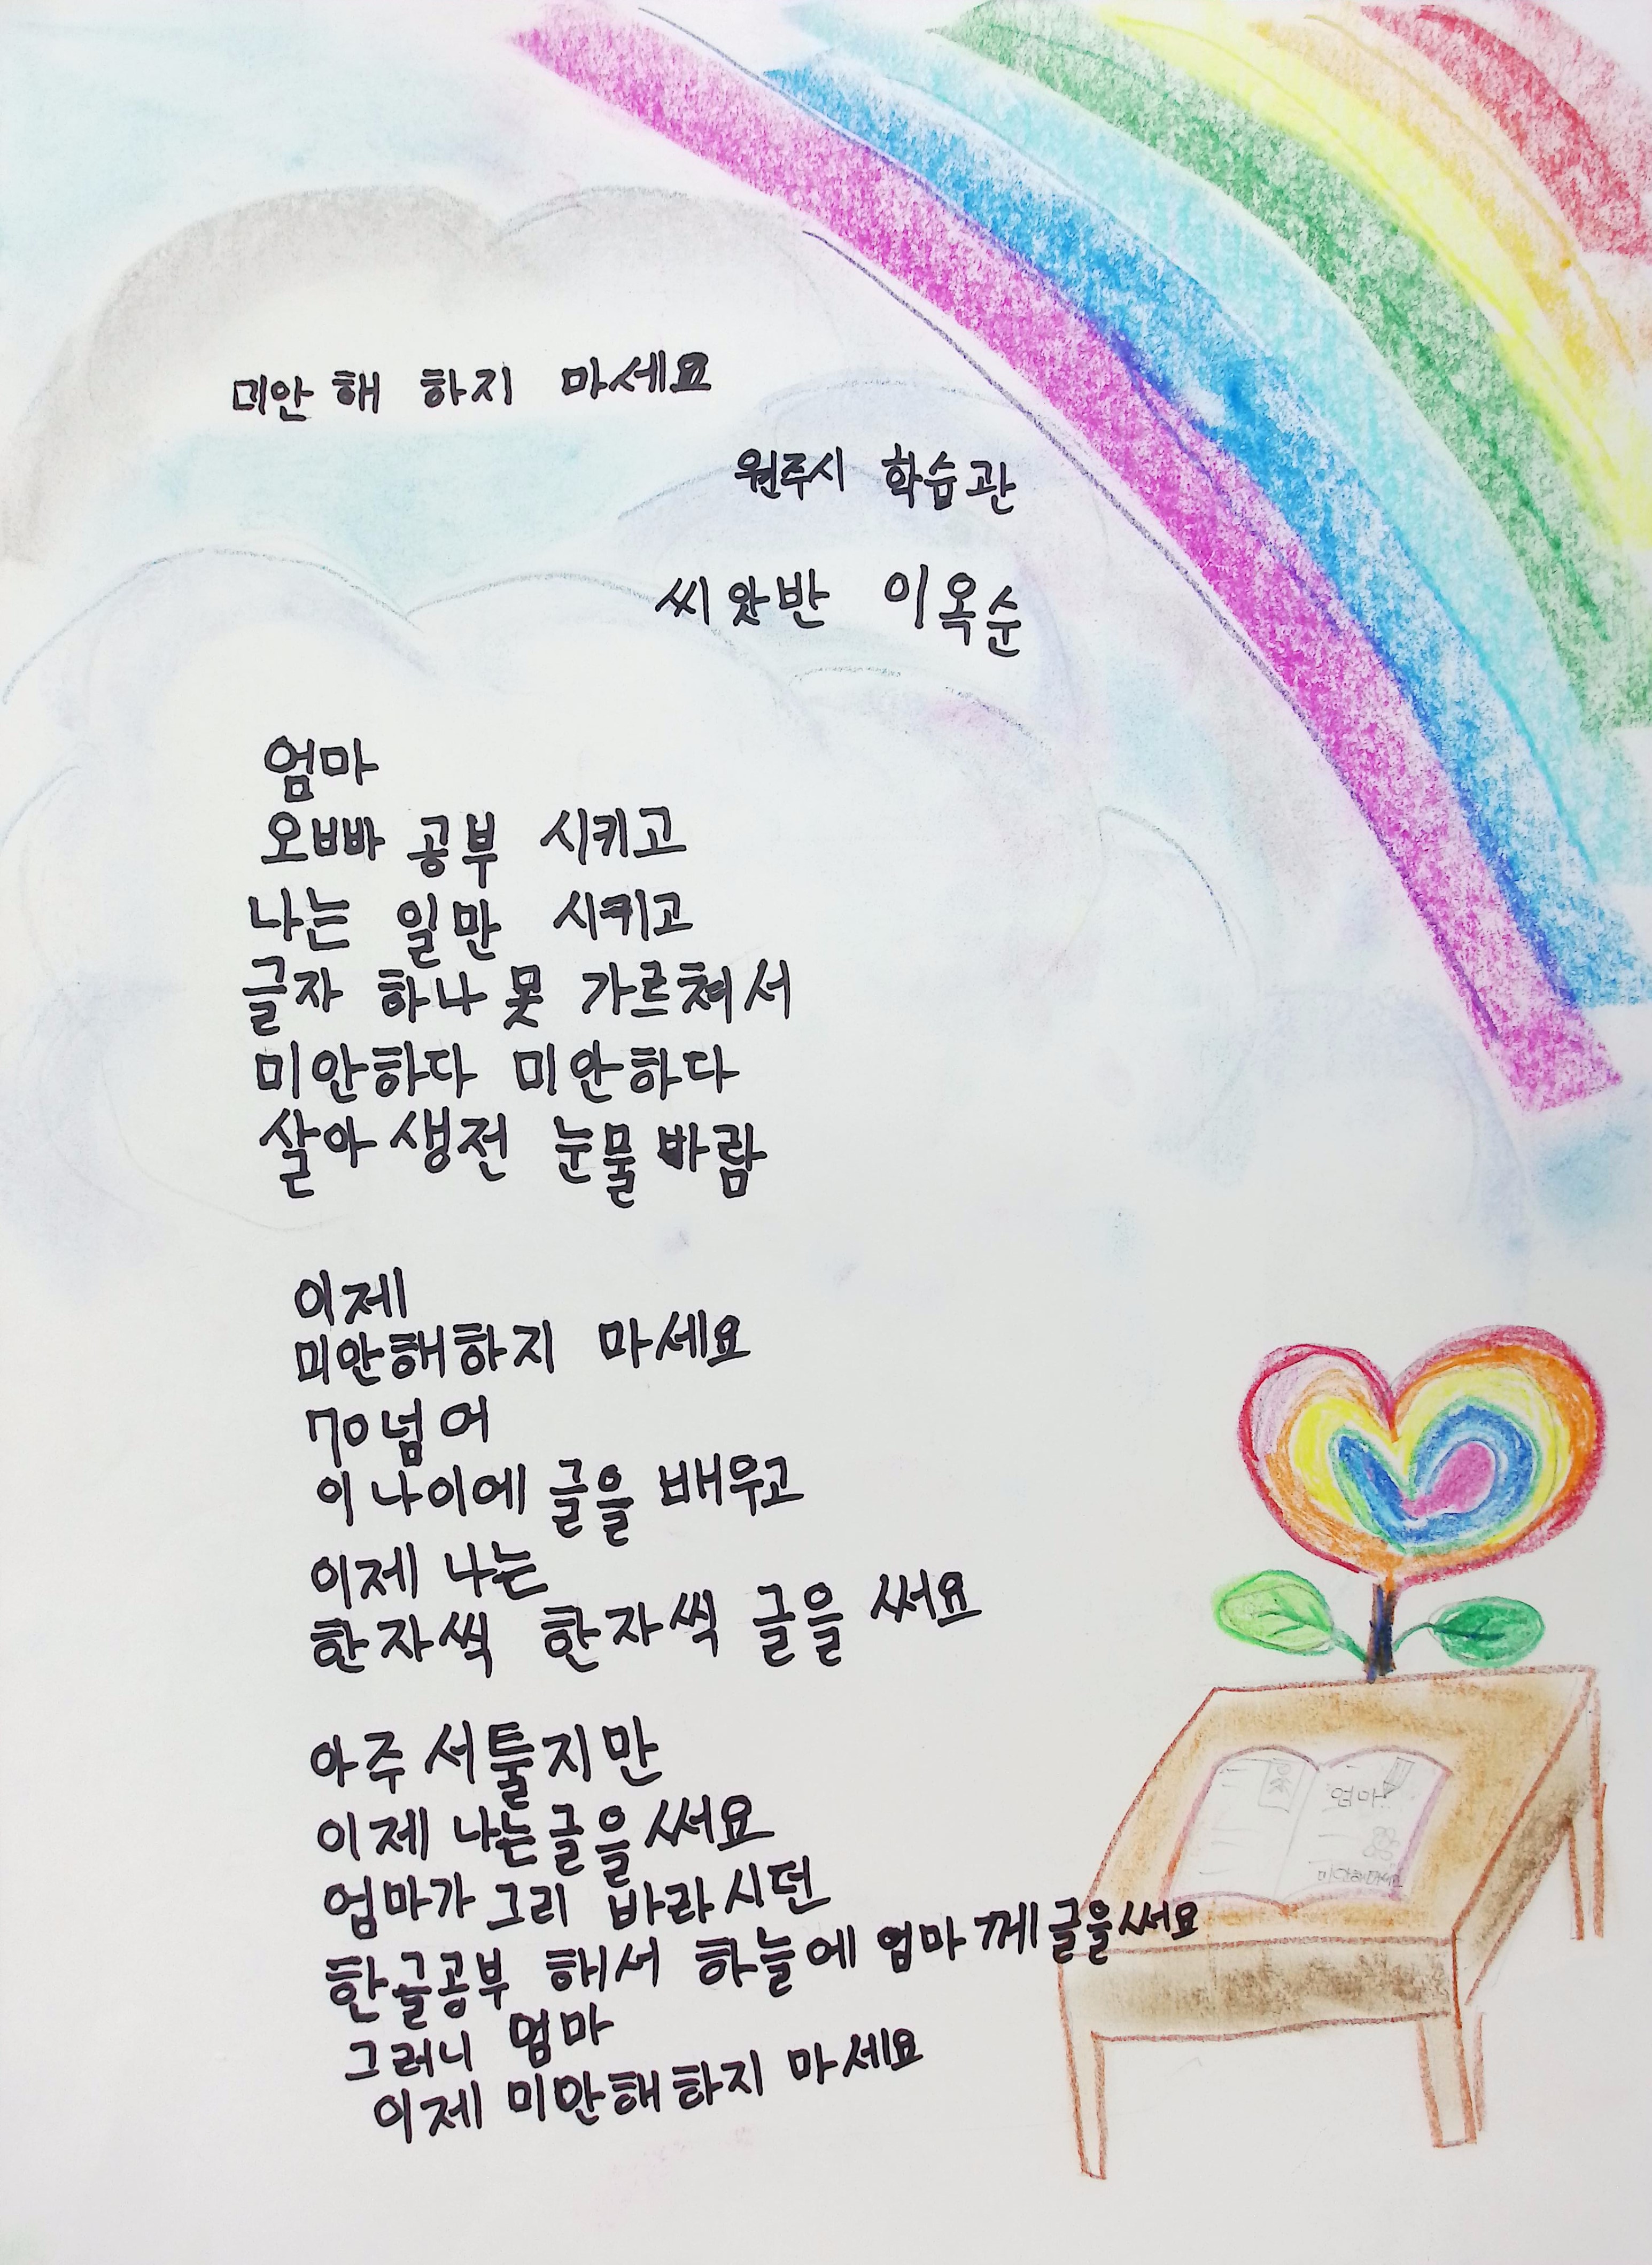 미안해 하지 마세요
원주시 학습관
씨앗반 이옥순
엄마
오빠 공부 시키고
나는 일만 시키고
글자 하나 못 가르쳐서
미안하다 미안하다
살아생전 눈물바람
이제
미안해하지 마세요
70넘어
이 나이에 글을 배우고
이제 나는
한자씩 한자씩 글을 써요
아주 서툴지만
이제 나는 글을 써요
엄마가 그리 바라시던
한글공부 해서 하늘에 엄마께 글을 써요
그러니 엄마
이제 미안해하지 마세요
엄마